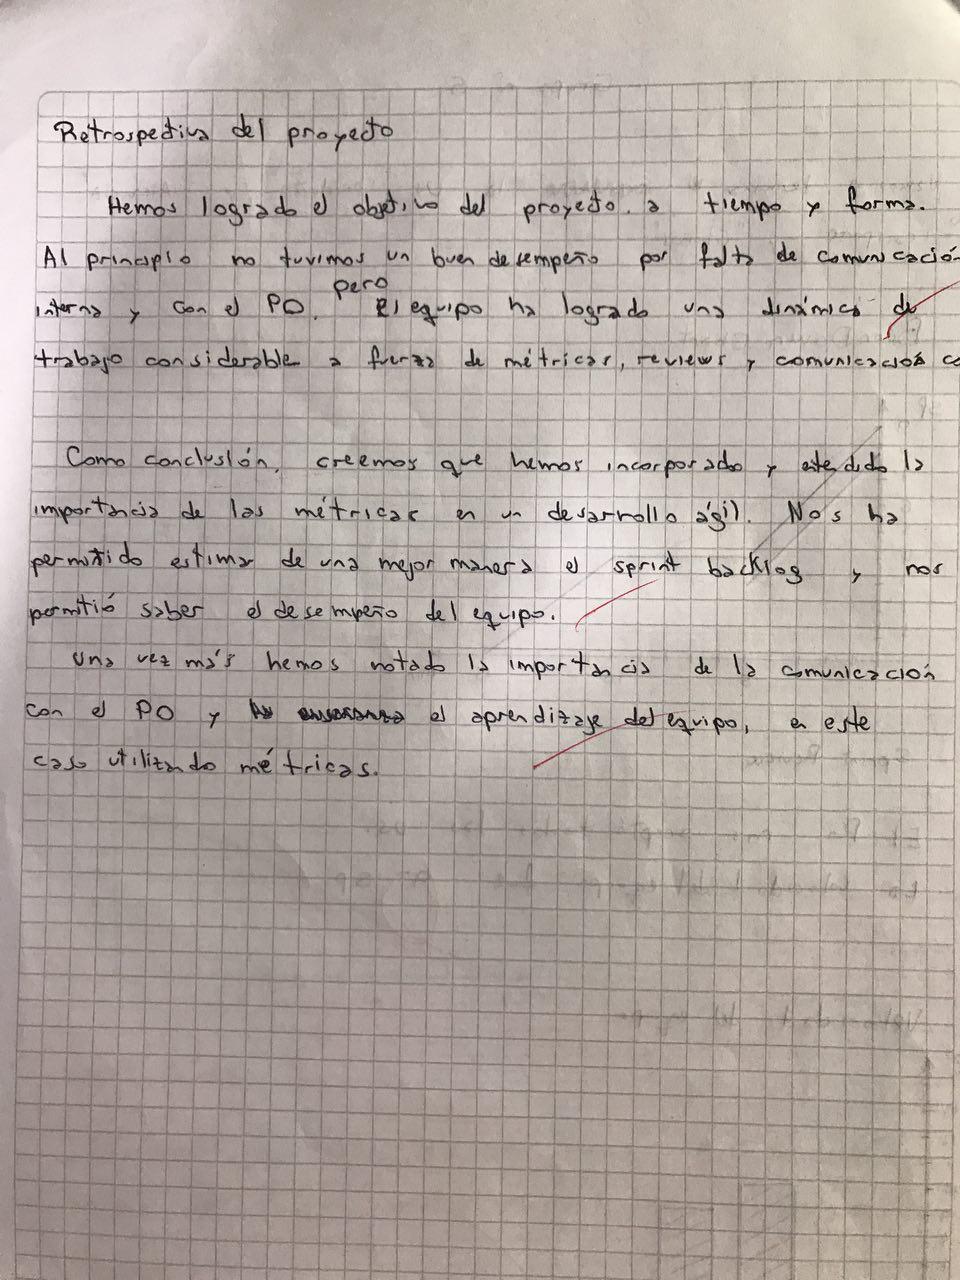 Retrospectiva del proyecto
Hemos logrado el objetivo del proyecto. a tiempo y forma.
Al principio no tuvimos un buen desempeño por falta de comunicación
interna y con el PO. pero El equipo ha logrado una dinámica de
trabajo considerable a fuerza de métricas, reviews y comunicación co
Como conclusión, creemos que hemos incorporado y entendido la
importancia de las métricas en un desarrollo ágil. Nos ha
permitido estimar de una mejor manera el sprint backlog y nos
permitió saber el desempeño del equipo.
Una vez más hemos notado la importancia de la comunicación
con el PO y el aprendizaje del equipo, en este
caso utilizando métricas.